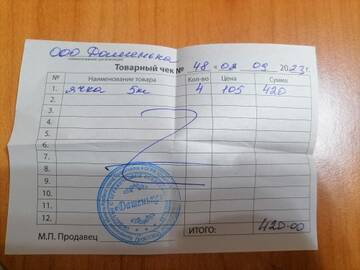 ООО Дашенька
наименование организации
Товарный чек № 48 от 09 2023 г.
№ Наименование товара Кол-во Цена Сумма
1. ячка 5кг 4 105 420
2.
3.
4.
5.
6.
7.
8.
9.
10.
11.
12.
"Дашенька"
ИТОГО: 420-00
М.П. Продавец